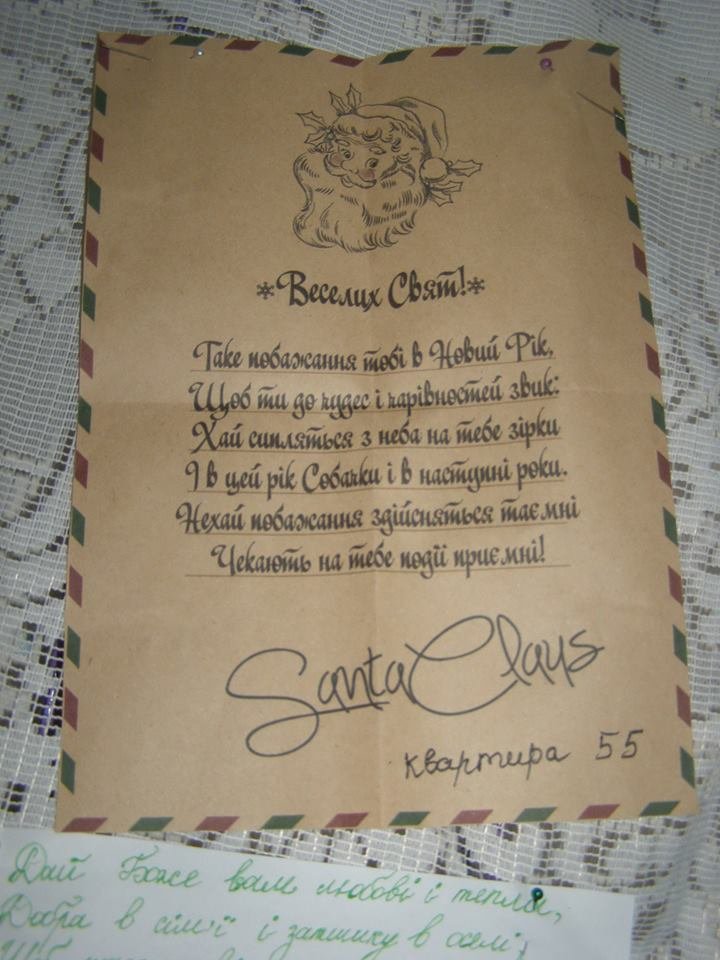 *Веселих Свят!*
Таке побажання тобі в Новий Рік,
Щоб ти до чудес і чарівностей звик:
Хай сипляться з неба на тебе зірки
І в цей рік Собачки і в наступні роки.
Нехай побажання здійсняться таємні
Чекають на тебе події приємні!
Santa Claus
квартира 55
Дай Боже вам любові і тепла,
Добра в сім'ї і затишку в оселі,
Щоб